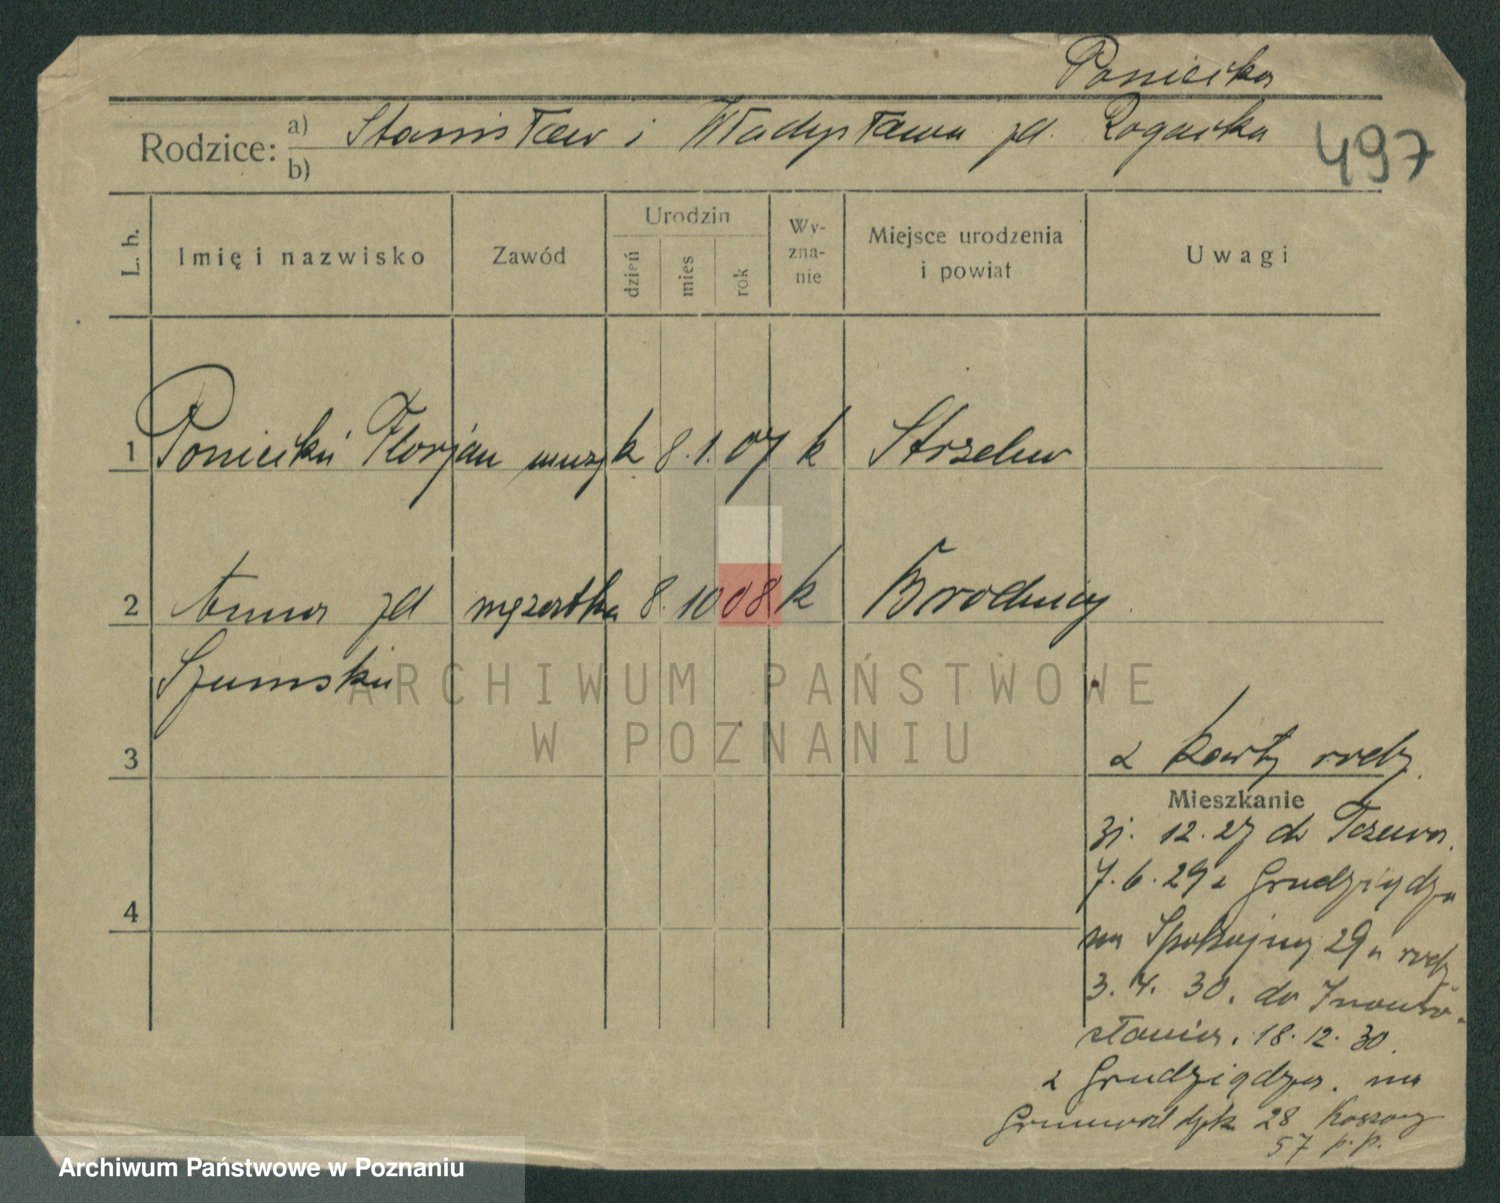 Ponicika
Rodzice: a) Stanisław i Władysława zd. Rogacka
b)
497
L. b. Imię i nazwisko Zawód Urodzin dzień mies rok Wy-zna-nie Miejsce urodzenia i powiat Uwagi
1 Ponicki Florjan muzyk 8. 1. 07 k Strzelno
2 Anna zd mężatka 8. 10 08 k Brodnicy
Szumska
3
z karty rodz.
Mieszkanie
31. 12. 27 do Tczewa.
7. 6. 29 z Grudziądza
4
na Spokojną 29
3. 4. 30. do Inowro-
cławia. 18. 12. 30.
z Grudziądza. na
28 Koszary
57 p.p.
ARCHIWUM PAŃSTWOWE
W POZNANIU
Archiwum Państwowe w Poznaniu